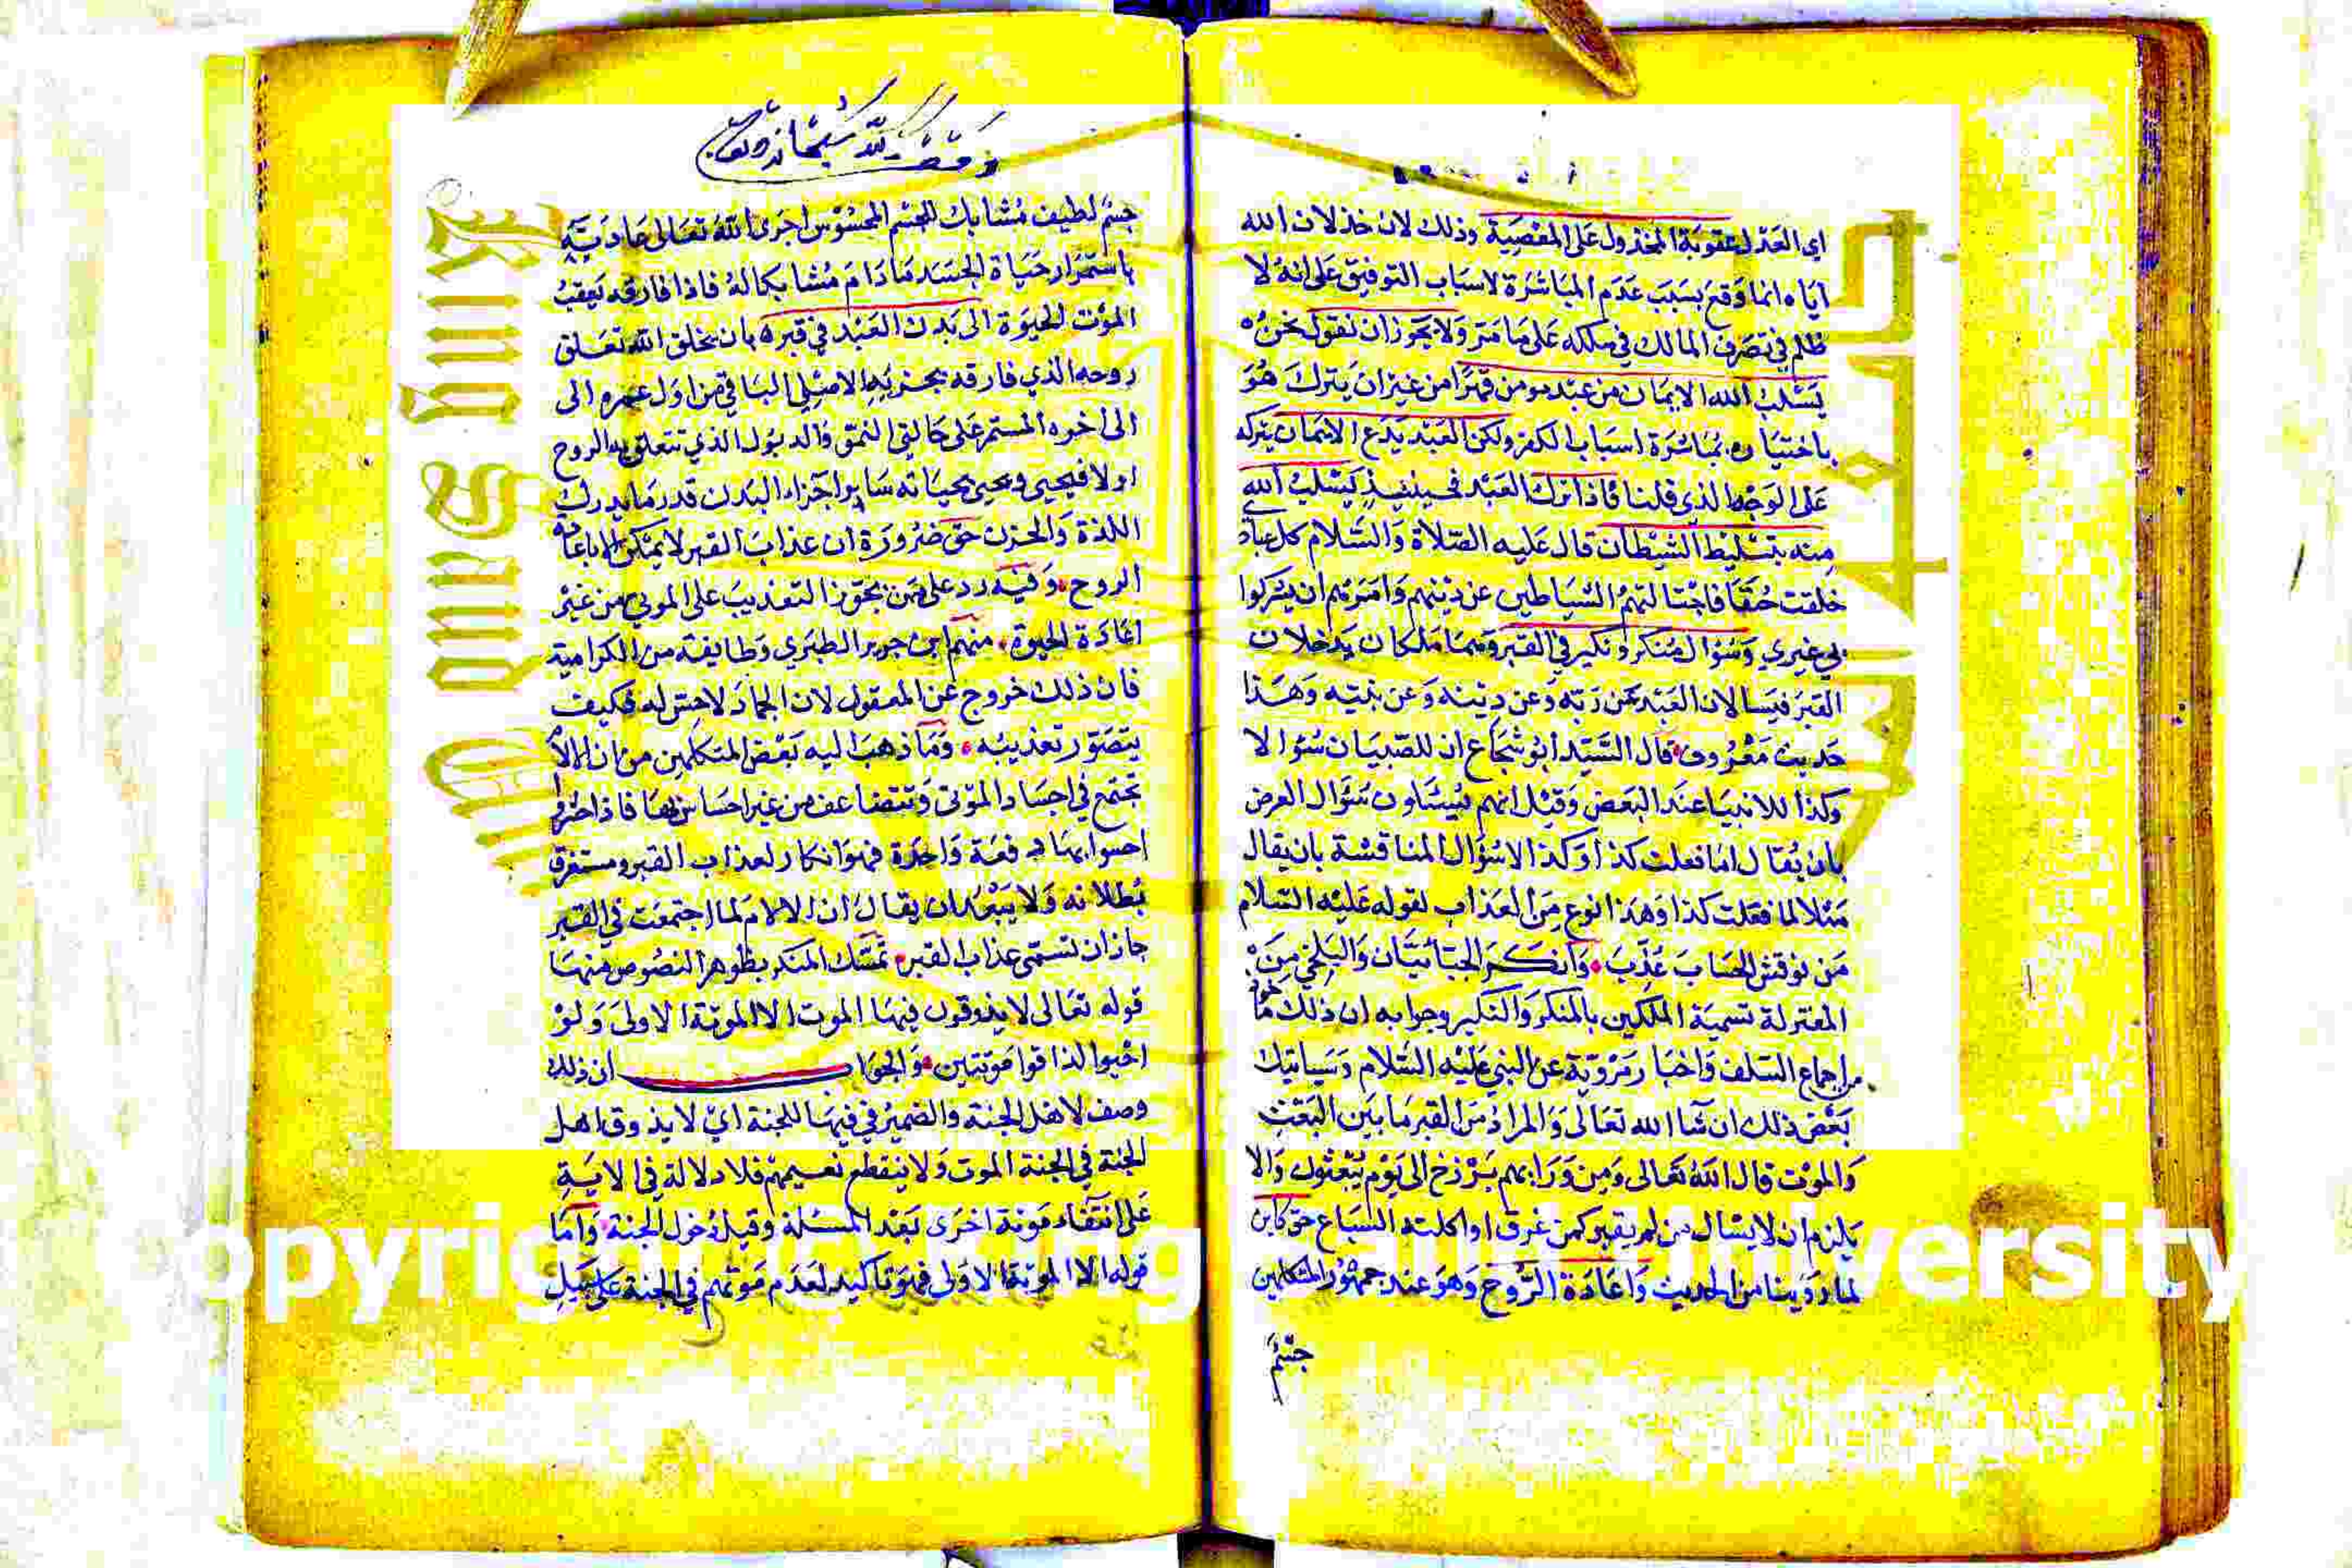 اي العدل عقوبة المخذول على المعصية وذلك لان خذلان الله
اياه انما وقع بسبب عدم المباشرة لاسباب التوفيق على انه لا
ظلم في تصرف المالك في ملكه على ما مر ولا يجوز ان نقول
يسلب الله الايمان من عبد مومن قهرا من غير ان يترك هو
باختياره بمباشرة اسباب الكفر ولكن العبد يدع الايمان يتركه
على الوجه الذي قلنا فاذا ترك العبد فحينيذ يسلب الله
منه بتسليط الشيطان قال عليه الصلاة والسلام كل عبادي
خلقت حنفا فاجتالتهم الشياطين عن دينهم وامرتهم ان يشركوا
بي غيري وسؤال منكر ونكير في القبر وهما ملكان يدخلان
القبر فيسالان العبد عن ربه وعن دينه وعن نبيه وهذا
حديث معروف قال السيد ابو شجاع ان للصبيان سؤالا
وكذا للانبيا عند البعض وقيل انهم يسالون سؤال العرض
بان يقال اما فعلت كذا وكذا لا سؤال المناقشة بان يقال
مثلا لما فعلت كذا وهذا نوع من العذاب لقوله عليه السلام
من نوقش الحساب عذب وانكر الجبائيان والبلخي من
المعتزلة تسمية الملكين بالمنكر والنكير وجوابه ان ذلك ماخوذ
من اجماع السلف واخبار مروية عن النبي عليه السلام وسياتيك
بعض ذلك ان شا الله تعالى والمراد من القبر ما بين البعث
والموت قال الله تعالى ومن ورايهم برزخ الى يوم يبعثون والا
يلزم ان لا يسال من لم يقبر كمن غرق او اكلته السباع حق كاين
لما روينا من الحديث واعادة الروح وهو عند جمهور المتكلمين
جسم
وقف لله سبحانه وتعالى
جسم لطيف مشابك للجسم المحسوس اجرى الله تعالى عادته
باستمرار حياة الجسد ما دام مشابكا له فاذا فارقه تعقب
الموت الحيوة الى بدن العبد في قبره بان يخلق الله تعلق
روحه الذي فارقه بجزيه الاصلي الباقي من اول عمره الى
الى اخره المستمر على حالتي النمو والذبول الذي تتعلق به الروح
اولا فيحيى ويحيى بحياته ساير اجزاء البدن قدر ما يدرك
اللذة والحزن حق ضرورة ان عذاب القبر لا يمكن الا باعادة
الروح وفيه رد على من يجوز التعذيب على الموتى من غير
اعادة الحيوة منهم ابن جرير الطبري وطايفة من الكرامية
فان ذلك خروج عن المعقول لان الجماد لا حس له فكيف
يتصور تعذيبه وما ذهب اليه بعض المتكلمين من ان الالا
تجتمع في اجساد الموتى وتتضاعف من غير احساس بها فاذا حشروا
احسوا بها دفعة واحدة فهو انكار لعذاب القبر ومستغرق
بطلانه ولا يبعد ان يقال ان الالام لما اجتمعت في القبر
جاز ان تسمى عذاب القبر تمسك المنكر بظواهر النصوص منها
قوله تعالى لا يذوقون فيها الموت الا الموتة الاولى ولو
احيوا لذاقوا موتتين والجواب ان ذلك
وصف لاهل الجنة والضمير في فيها للجنة اي لا يذوق اهل
الجنة في الجنة الموت ولا ينقطع نعيمهم فلا دلالة في الاية
على انتفاء موتة اخرى بعد المسئلة وقيل دخول الجنة واما
قوله الا الموتة الاولى فهو تاكيد لعدم موتهم في الجنة على سبيل